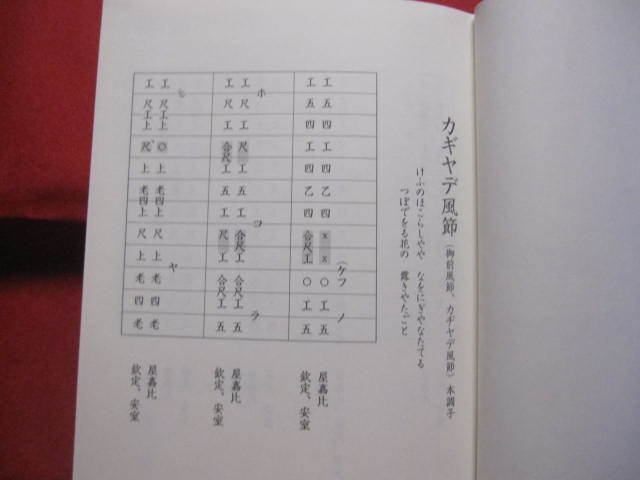 カギヤデ風節（御前風節、カヂヤデ風節）本調子
けふのほこらしやや なをにぎやなたてる
つぼでをる花の 露きやたごと
（ケフ ノ
工五四工四乙四xx○工五 屋嘉比
工五四工四乙四合尺工○工五 欽定、安室
ホ コ ラ
工尺工尺工五工合尺工合尺工五 屋嘉比
工尺工合尺工五工尺工合尺工五 欽定、安室
シ ヤ
工尺工上◎上老四上尺上老四老 屋嘉比
工尺工上尺上老四上尺上老四老 欽定、安室